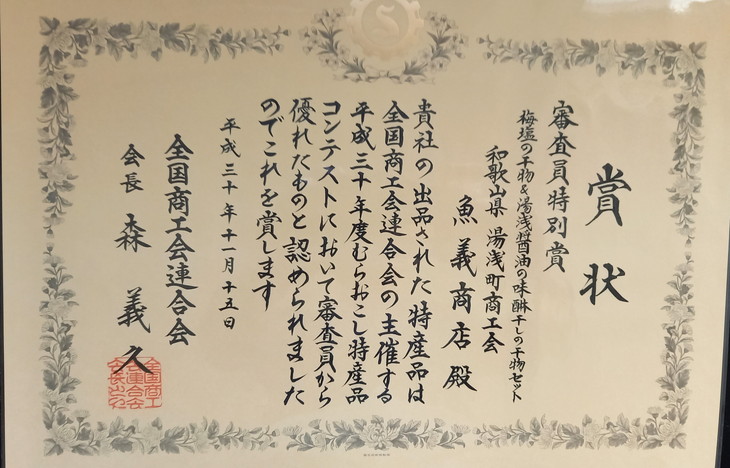 賞状
審査員特別賞
梅塩の干物&湯浅醤油の味醂干しの干物セット
和歌山県 湯浅町商工会
魚義商店殿
貴社の出品された特産品は
全国商工会連合会の主催する
平成三十年度むらおこし特産品
コンテストにおいて審査員から
優れたものと認められました
のでこれを賞します
平成三十年十一月十五日
全国商工会連合会
会長 森義久
全国商工会連合会会長之印